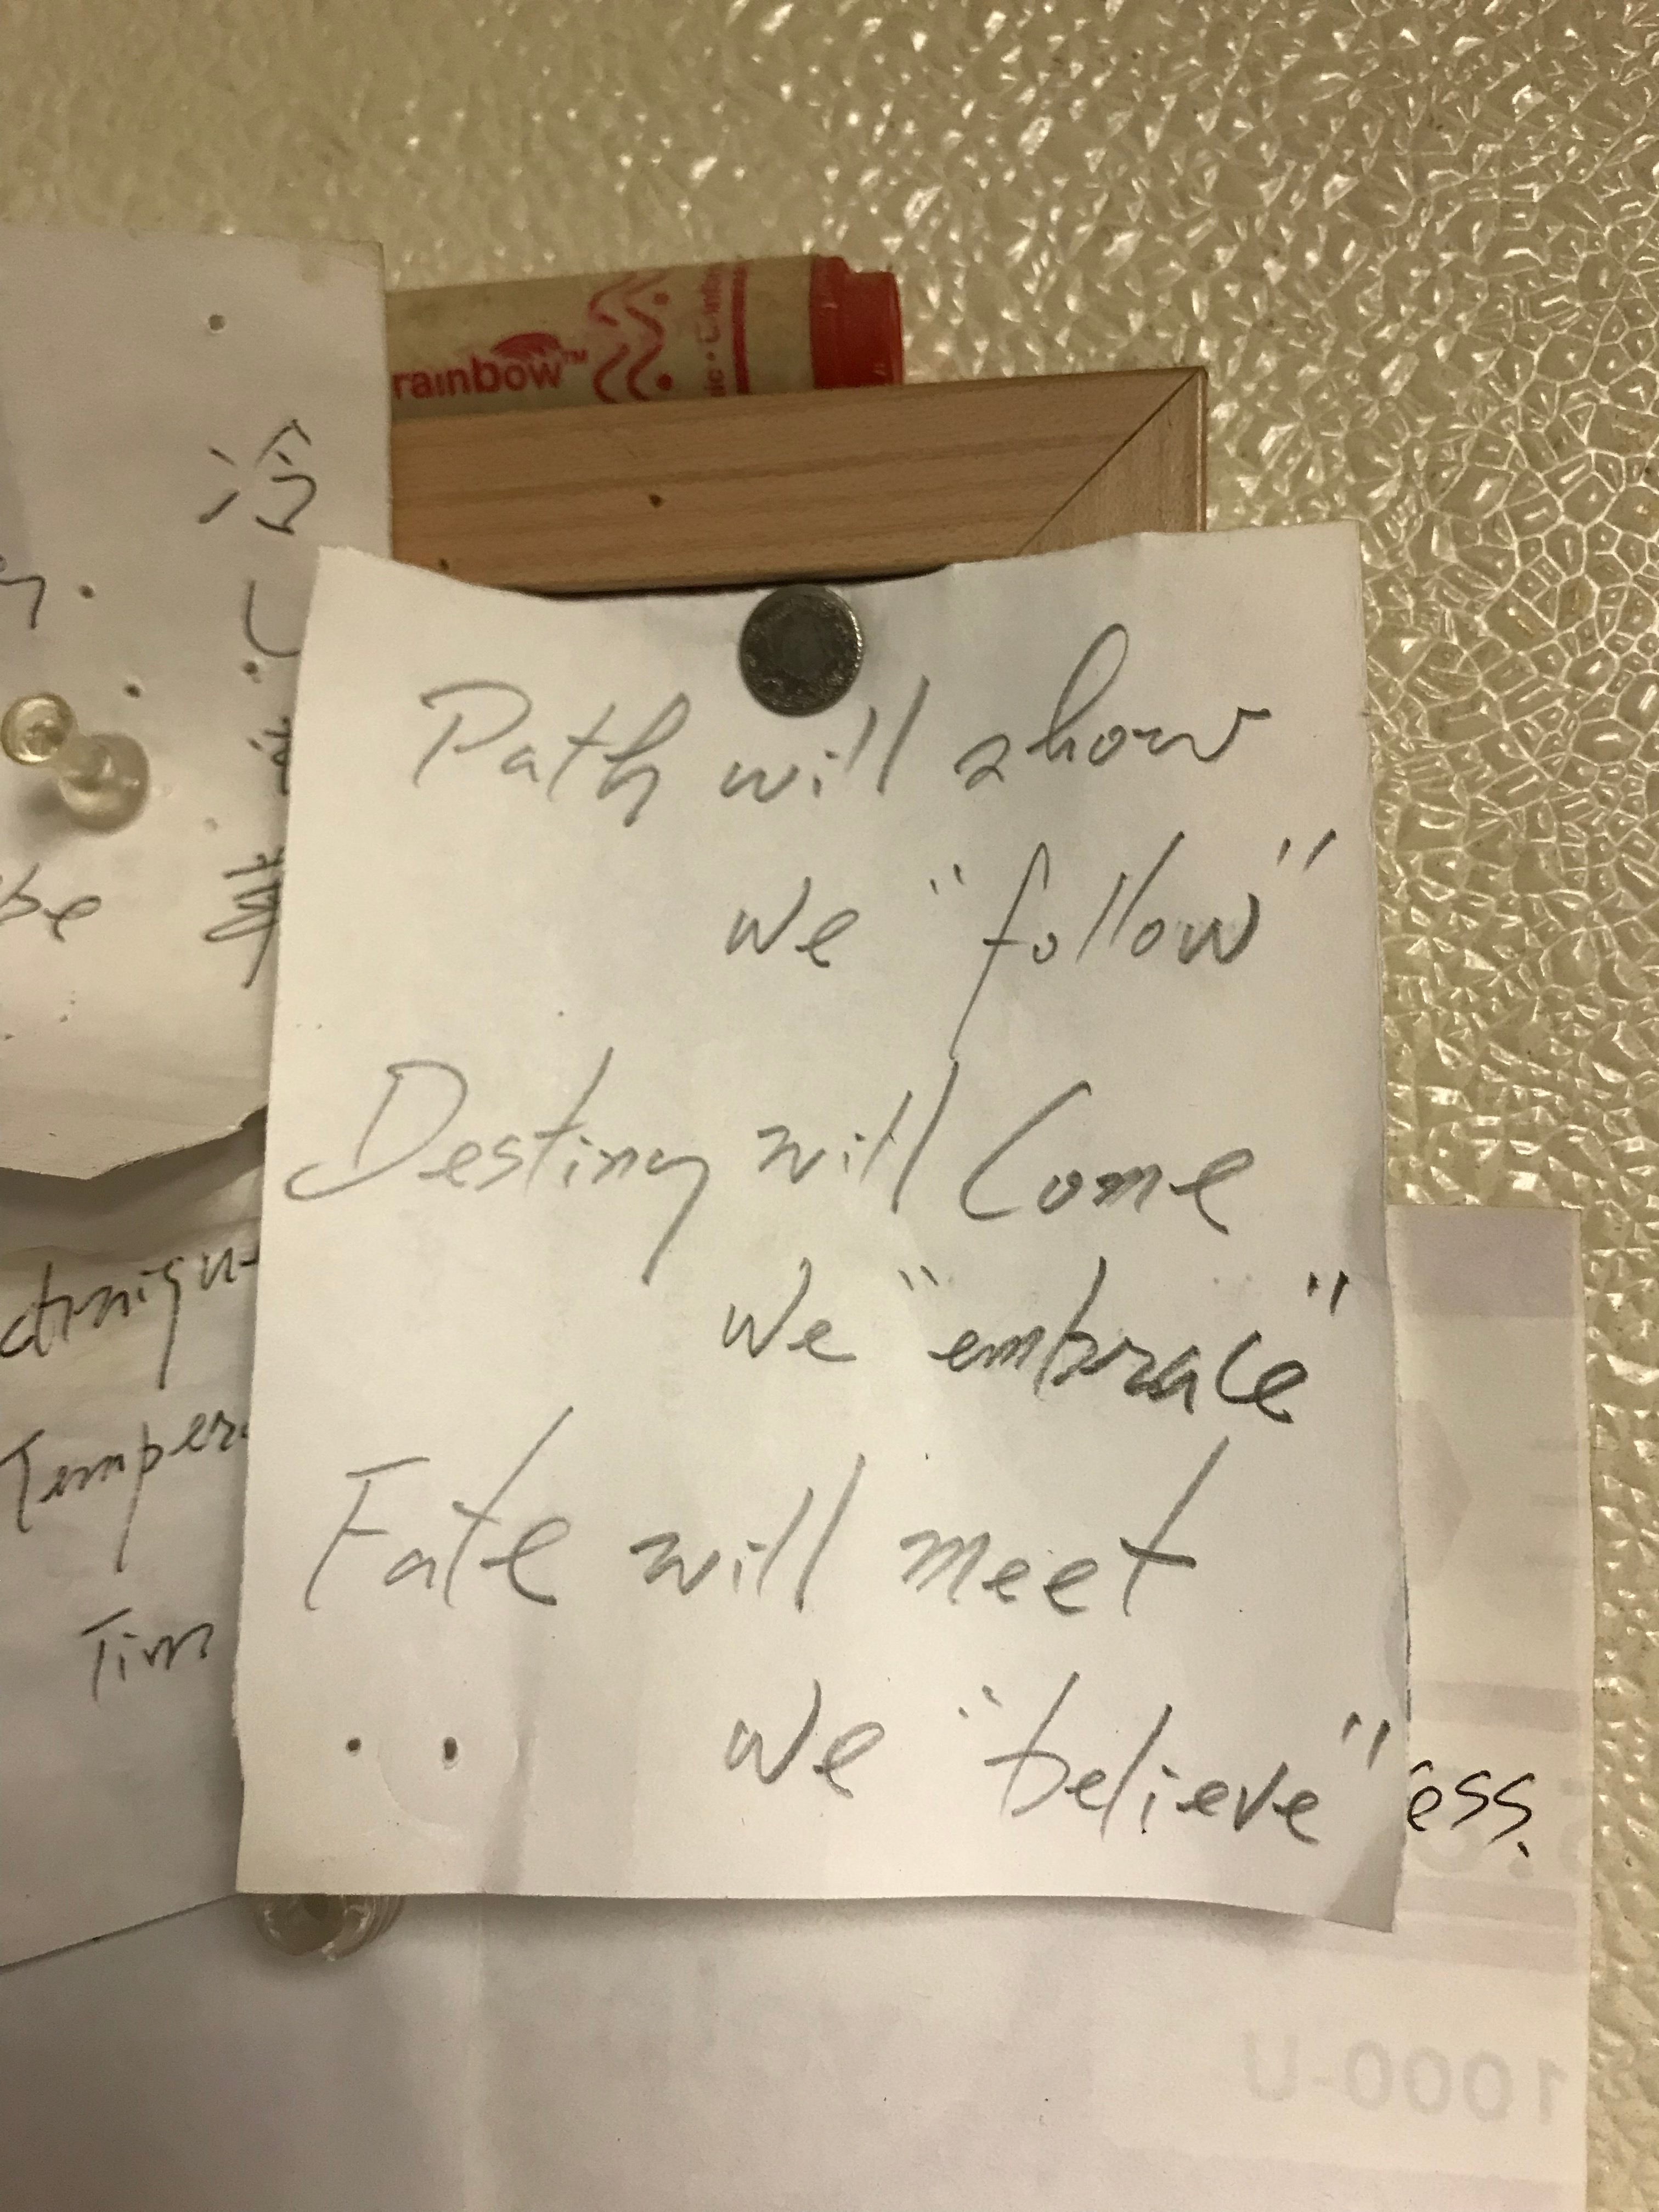 rainbow™
冷
be
Path will show
we "follow"
Destiny will Come
we "embrace"
Fate will meet
we "believe"
Temper
Tim
ess.
1000-U